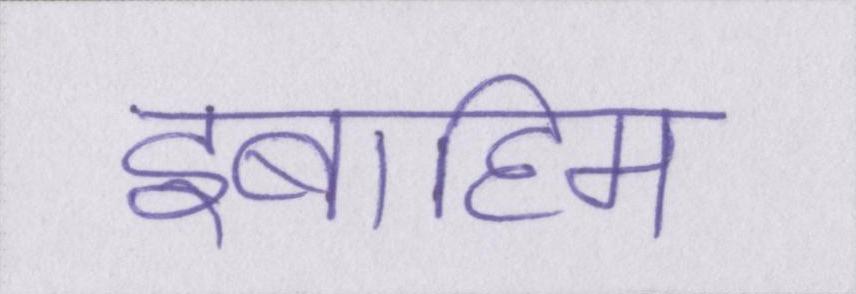 इबाहिम